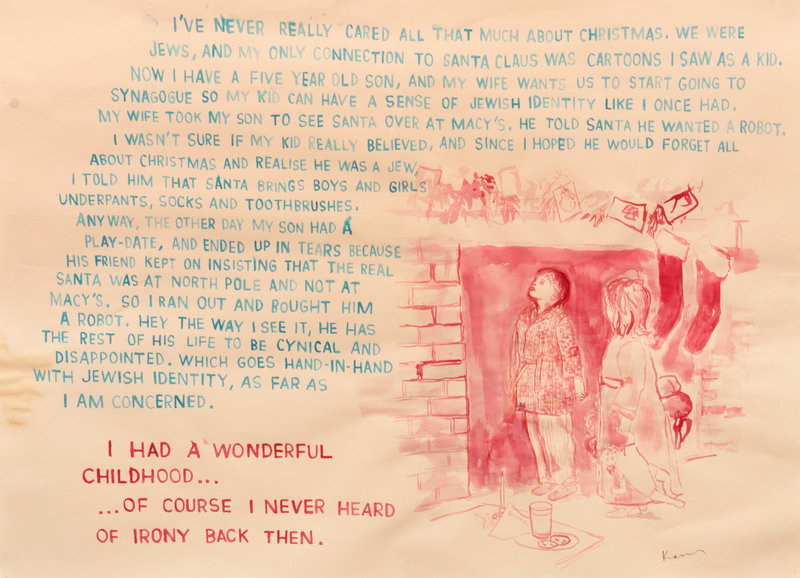 I'VE NEVER REALLY CARED ALL THAT MUCH ABOUT CHRISTMAS. WE WERE
JEWS, AND MY ONLY CONNECTION TO SANTA CLAUS WAS CARTOONS I SAW AS A KID.
NOW I HAVE A FIVE YEAR OLD SON, AND MY WIFE WANTS US TO START GOING TO
SYNAGOGUE SO MY KID CAN HAVE A SENSE OF JEWISH IDENTITY LIKE I ONCE HAD.
MY WIFE TOOK MY SON TO SEE SANTA OVER AT MACY'S. HE TOLD SANTA HE WANTED A ROBOT.
I WASN'T SURE IF MY KID REALLY BELIEVED, AND SINCE I HOPED HE WOULD FORGET ALL
ABOUT CHRISTMAS AND REALISE HE WAS A JEW,
I TOLD HIM THAT SANTA BRINGS BOYS AND GIRLS
UNDERPANTS, SOCKS AND TOOTHBRUSHES.
ANYWAY, THE OTHER DAY MY SON HAD A
PLAY-DATE, AND ENDED UP IN TEARS BECAUSE
HIS FRIEND KEPT ON INSISTING THAT THE REAL
SANTA WAS AT NORTH POLE AND NOT AT
MACY'S. SO I RAN OUT AND BOUGHT HIM
A ROBOT. HEY THE WAY I SEE IT, HE HAS
THE REST OF HIS LIFE TO BE CYNICAL AND
DISAPPOINTED. WHICH GOES HAND-IN-HAND
WITH JEWISH IDENTITY, AS FAR AS
I AM CONCERNED.
I HAD A WONDERFUL
CHILDHOOD...
...OF COURSE I NEVER HEARD
OF IRONY BACK THEN.